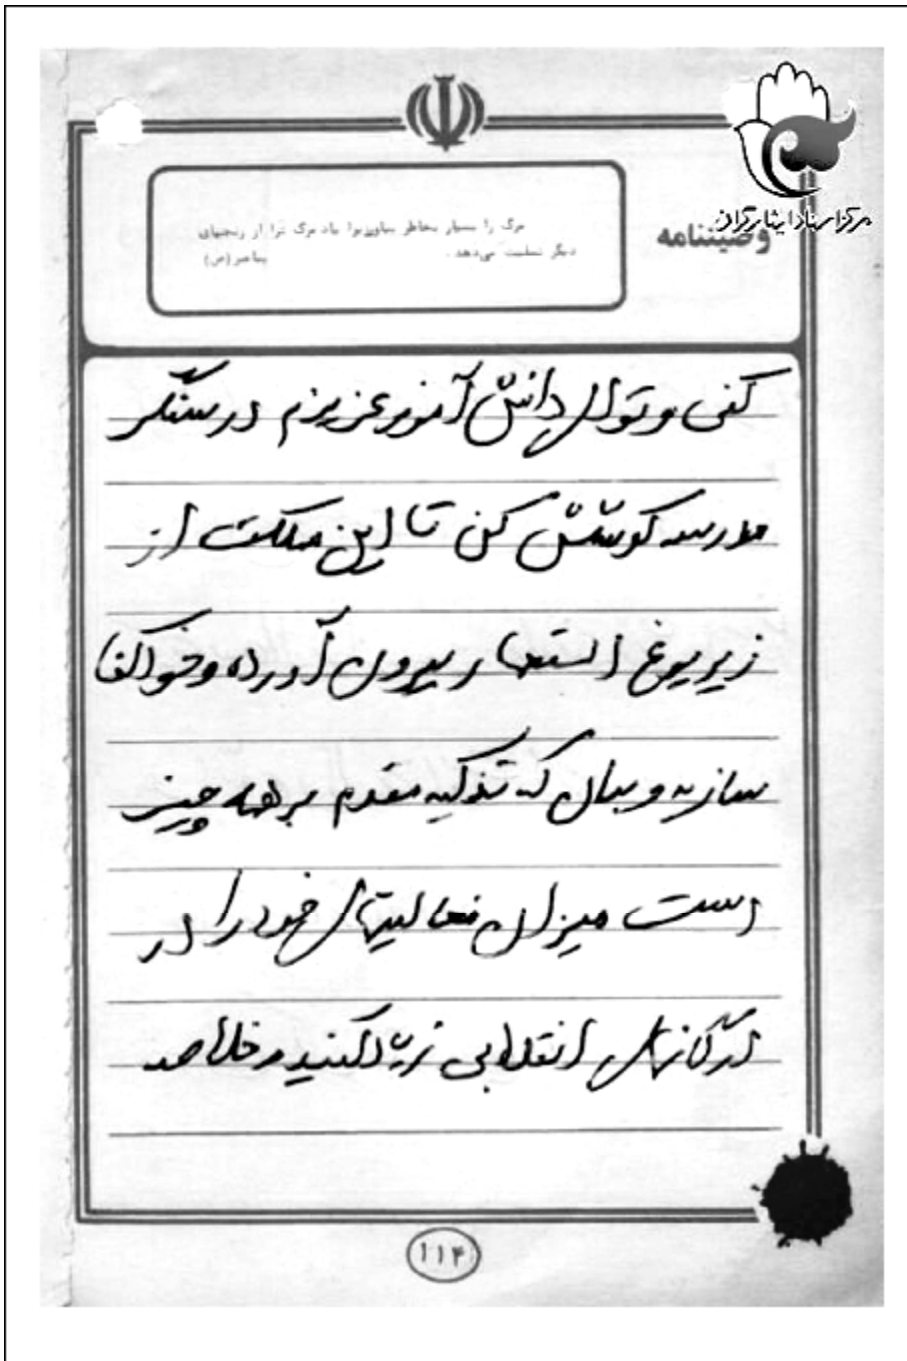 مرکز اسناد ایثارگران
وصیتنامه
مرگ را بسیار بخاطر بیاور یرا یاد مرگ ترا از رنجهای
دیگر تسلیت می‌دهد.
پیامبر(ص)
کنی و تو ای دانش آموز عزیزم در سنگر
مدرسه کوشش کن تا این مملکت از
زیر یوغ استعمار بیرون آورده و خودکفا
سازید و بدان که تذکیه مقدم بر همه چیز
است میزان فعالیتهای خود را در
ارگانهای انقلابی زیاد کنید و خلاصه
۱۱۴